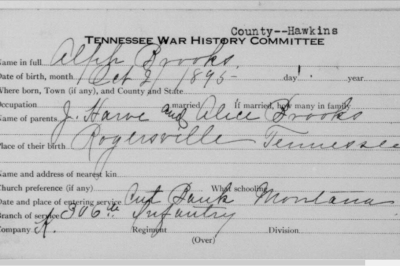 County--Hawkins
TENNESSEE WAR HISTORY COMMITTEE
Name in full Brooks.
Date of birth, month Oct 2 1895 day 1 year.
Where born, Town (if any), and County and State
Occupation married If married, how many in family
Name of parents J. Harve and Alice Brooks
Place of their birth Rogersville Tennessee
Name and address of nearest kin
Church preference (if any) What schooling
Date and place of entering service Cut Bank Montana
Branch of service 306th Infantry
Company K. Regiment Division
(Over)